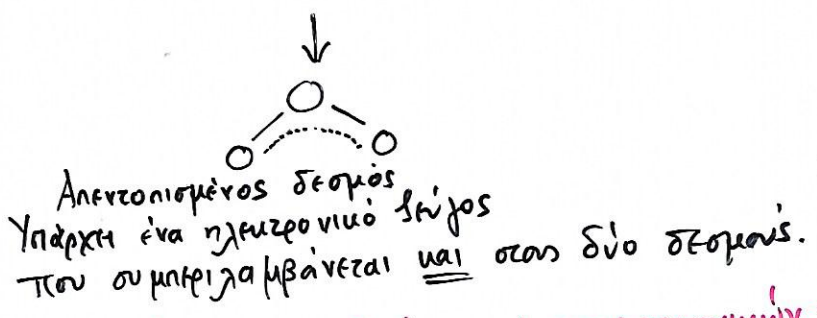 O
O O
Απεντοπισμένος δεσμός
Υπάρχει ένα ηλεκτρονικό ζεύγος
που συμπεριλαμβάνεται και στους δύο δεσμούς.